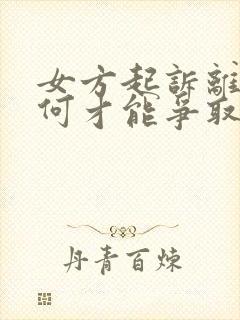 女方起訴離
何才能爭取
丹青百煉